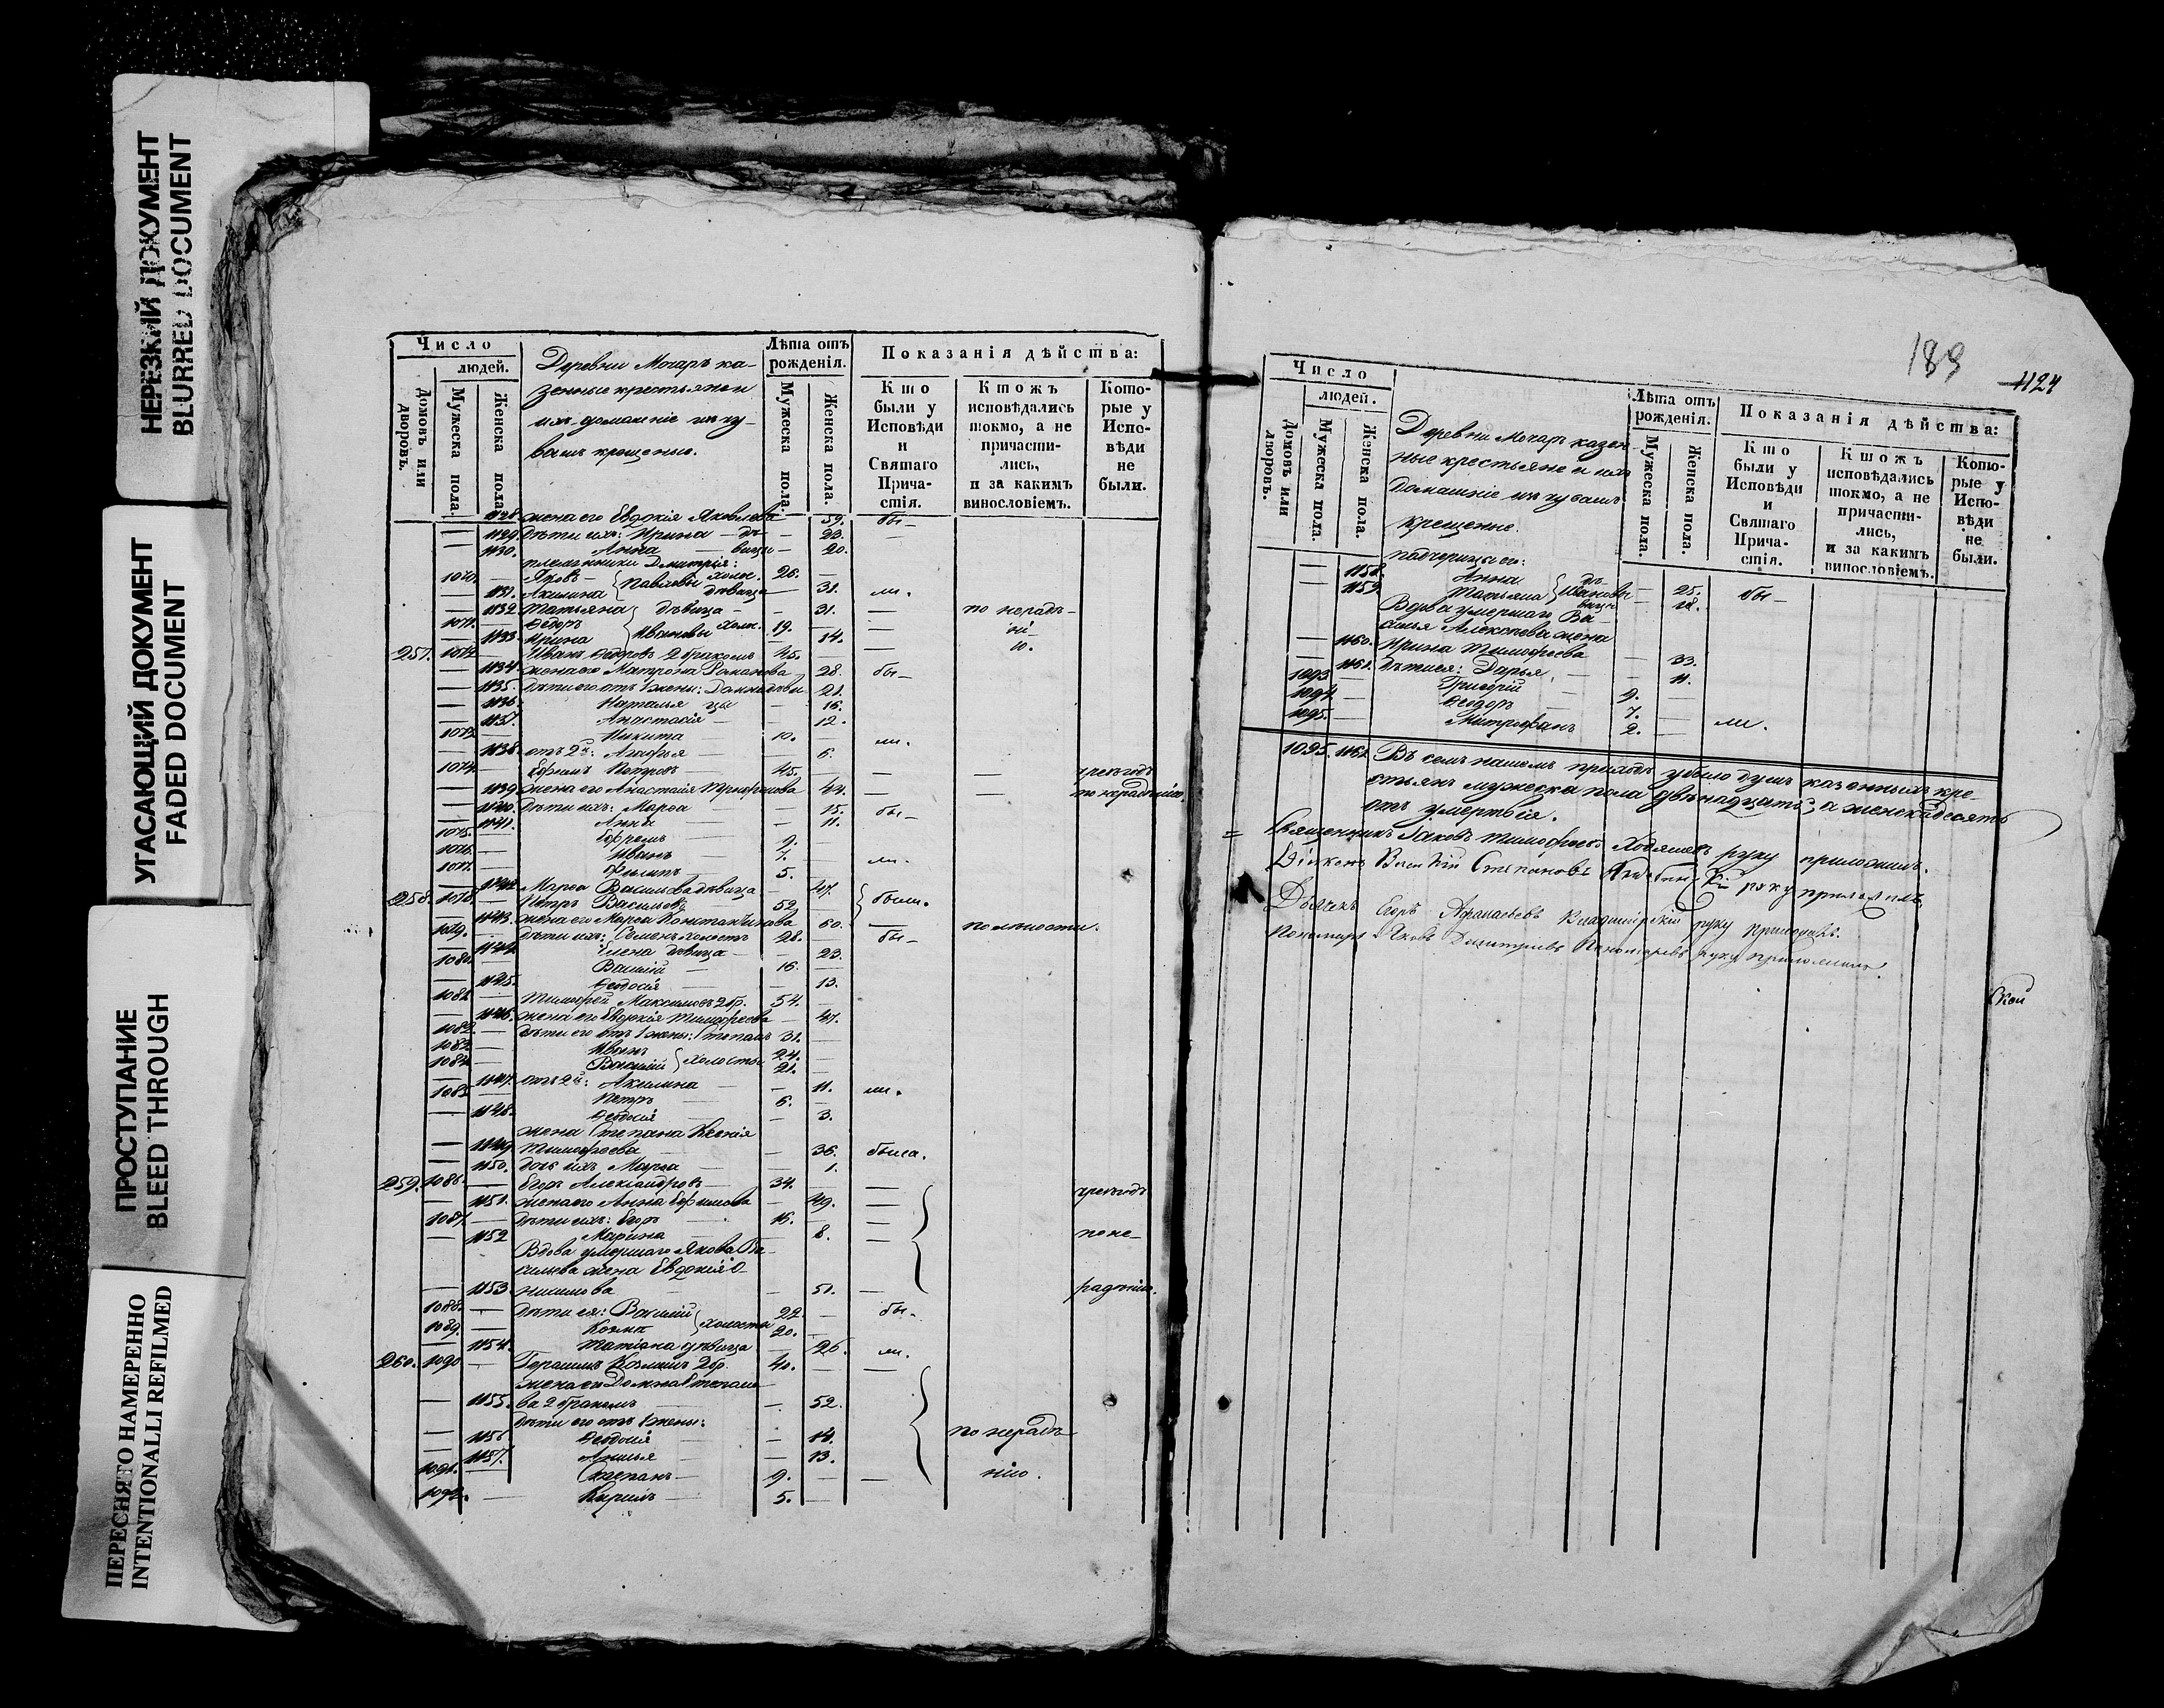 НЕРЕЗКИЙ ДОКУМЕНТ
BLURRED DOCUMENT
УГАСАЮЩИЙ ДОКУМЕНТ
FADED DOCUMENT
ПРОСТУПАНИЕ
BLEED THROUGH
ПЕРЕСНЯТО НАМЕРЕННО
INTENTIONALLI REFILMED
Число
людей.
Домовъ или дворовъ.
Мужеска пола.
Женска пола.
Деревни Мочаръ ка-
зенные крестьяне и
ихъ домашніе изъ чу-
вашъ крещеные.
Лѣта отъ рожденія.
Мужеска пола.
Женска пола.
Показанія дѣйства:
Кто были у Исповѣди и Святаго Прича-стія.
Ктожъ исповѣдались токмо, а не причасти-лись, и за какимъ винословіемъ.
Кото-рые у Испо-вѣди не были.
1128. жена его Евдокія Яковлева 59. бы-
1129. Дѣти ихъ: Ирина — дѣ- 23.
1130. Анна — вицы 20.
племянники Дмитрія:
1070. Яковъ Павловы холос. 26.
1131. Акилина дѣвица 31. ли.
1132. Татьяна дѣвица 31. по нерадѣ-
1071. Ѳедоръ Ивановы холос. 19. ні-
1133. Ирина 14. ю.
257. 1072. Иванъ Ѳедоровъ 2 бракомъ 45.
1134. жена его Матрона Романова 28. бы-
1135. Дѣти его отъ 1 жены: Домна дѣви- 21.
1136. Наталья цы 16.
1137. Анастасія 12.
1073. Никита 10. ли.
1138. отъ 2й: Агафья 6.
1074. Ефимъ Петровъ 45. трет годъ
1139. жена его Анастасія Трифонова 44. по нерадѣнію.
1140. Дѣти ихъ: Марѳа 15. бы-
1141. Анна 11.
1075. Ефремъ 9.
1076. Иванъ 7. ли.
1077. Филипъ 5.
1142. Марѳа Васильева дѣвица 47.
258. 1078. Петръ Васильевъ 59. были.
1143. жена его Марѳа Константинова 60. по лѣности.
1079. Дѣти ихъ: Семенъ холостъ 28. бы-
1144. Елена дѣвица 23.
1080. Василій 16.
1145. Ѳеодосія 13.
1081. Тимофей Максимовъ 2 бр. 54.
1146. жена его Евдокія Тимофеева 47.
1082. Дѣти его отъ 1 жены: Степанъ 31.
1083. Иванъ 24.
1084. Василій холосты 21.
1147. отъ 2й: Акилина 11. ли.
1085. Петръ 6.
1148. Ѳеодосія 3.
жена Степана Ксенія
1149. Тимофеева 36. была.
1150. дочь ихъ Марѳа 1.
259. 1086. Егоръ Александровъ 34. трет годъ
1151. жена его Анна Ефимова 49.
1087. Дѣти ихъ: Егоръ 15.
1152. Марина 8. по не-
Вдова умершаго Якова Ва-
сильева жена Евдокія О-
1153. нисимова 51. радѣнію.
1088. Дѣти ея: Василій 22. бы-
1089. Козма холосты 20.
1154. Татіана дѣвица 26. ли.
260. 1090. Герасимъ Козминъ 2 бр. 40.
жена его Домна Степано-
1155. ва 2 бракомъ 52.
Дѣти его отъ 1 жены:
1156. Ѳеодосія 14. по нерадѣ-
1157. Анисья 13.
1091. Степанъ 9. нію.
1092. Кирилъ 5.
189
1124
Число
людей.
Домовъ или дворовъ.
Мужеска пола.
Женска пола.
Деревни Мочаръ казен-
ные крестьяне и ихъ
домашніе изъ чувашъ
крещеные.
Лѣта отъ рожденія.
Мужеска пола.
Женска пола.
Показанія дѣйства:
Кто были у Исповѣди и Святаго Прича-стія.
Ктожъ исповѣдались токмо, а не причасти-лись, и за какимъ винословіемъ.
Кото-рые у Испо-вѣди не были.
падчерицы его:
1158. Анна дѣ- 25. бы-
1159. Татьяна Ивановы вицы 18.
Вдова умершаго Ва-
силья Алексѣева жена
1160. Ирина Тимофеева 33.
1161. Дѣти ея: Дарья 11.
1093. Григорій 9.
1094. Ѳедоръ 7.
1095. Митрофанъ 2. ли.
1095. 1161. Въ семъ нашемъ приходѣ убыло душъ казенныхъ кре-
стьянъ мужеска пола двѣнадцать, а женска десять
отъ умертвія.
Священникъ Іаковъ Тимофеевъ руку приложилъ.
Діаконъ Василій Степановъ руку приложилъ.
Дьячекъ Егоръ Афанасьевъ Владимірскій руку приложилъ.
Пономарь Яковъ Димитріевъ Пономаревъ руку приложилъ.
ской